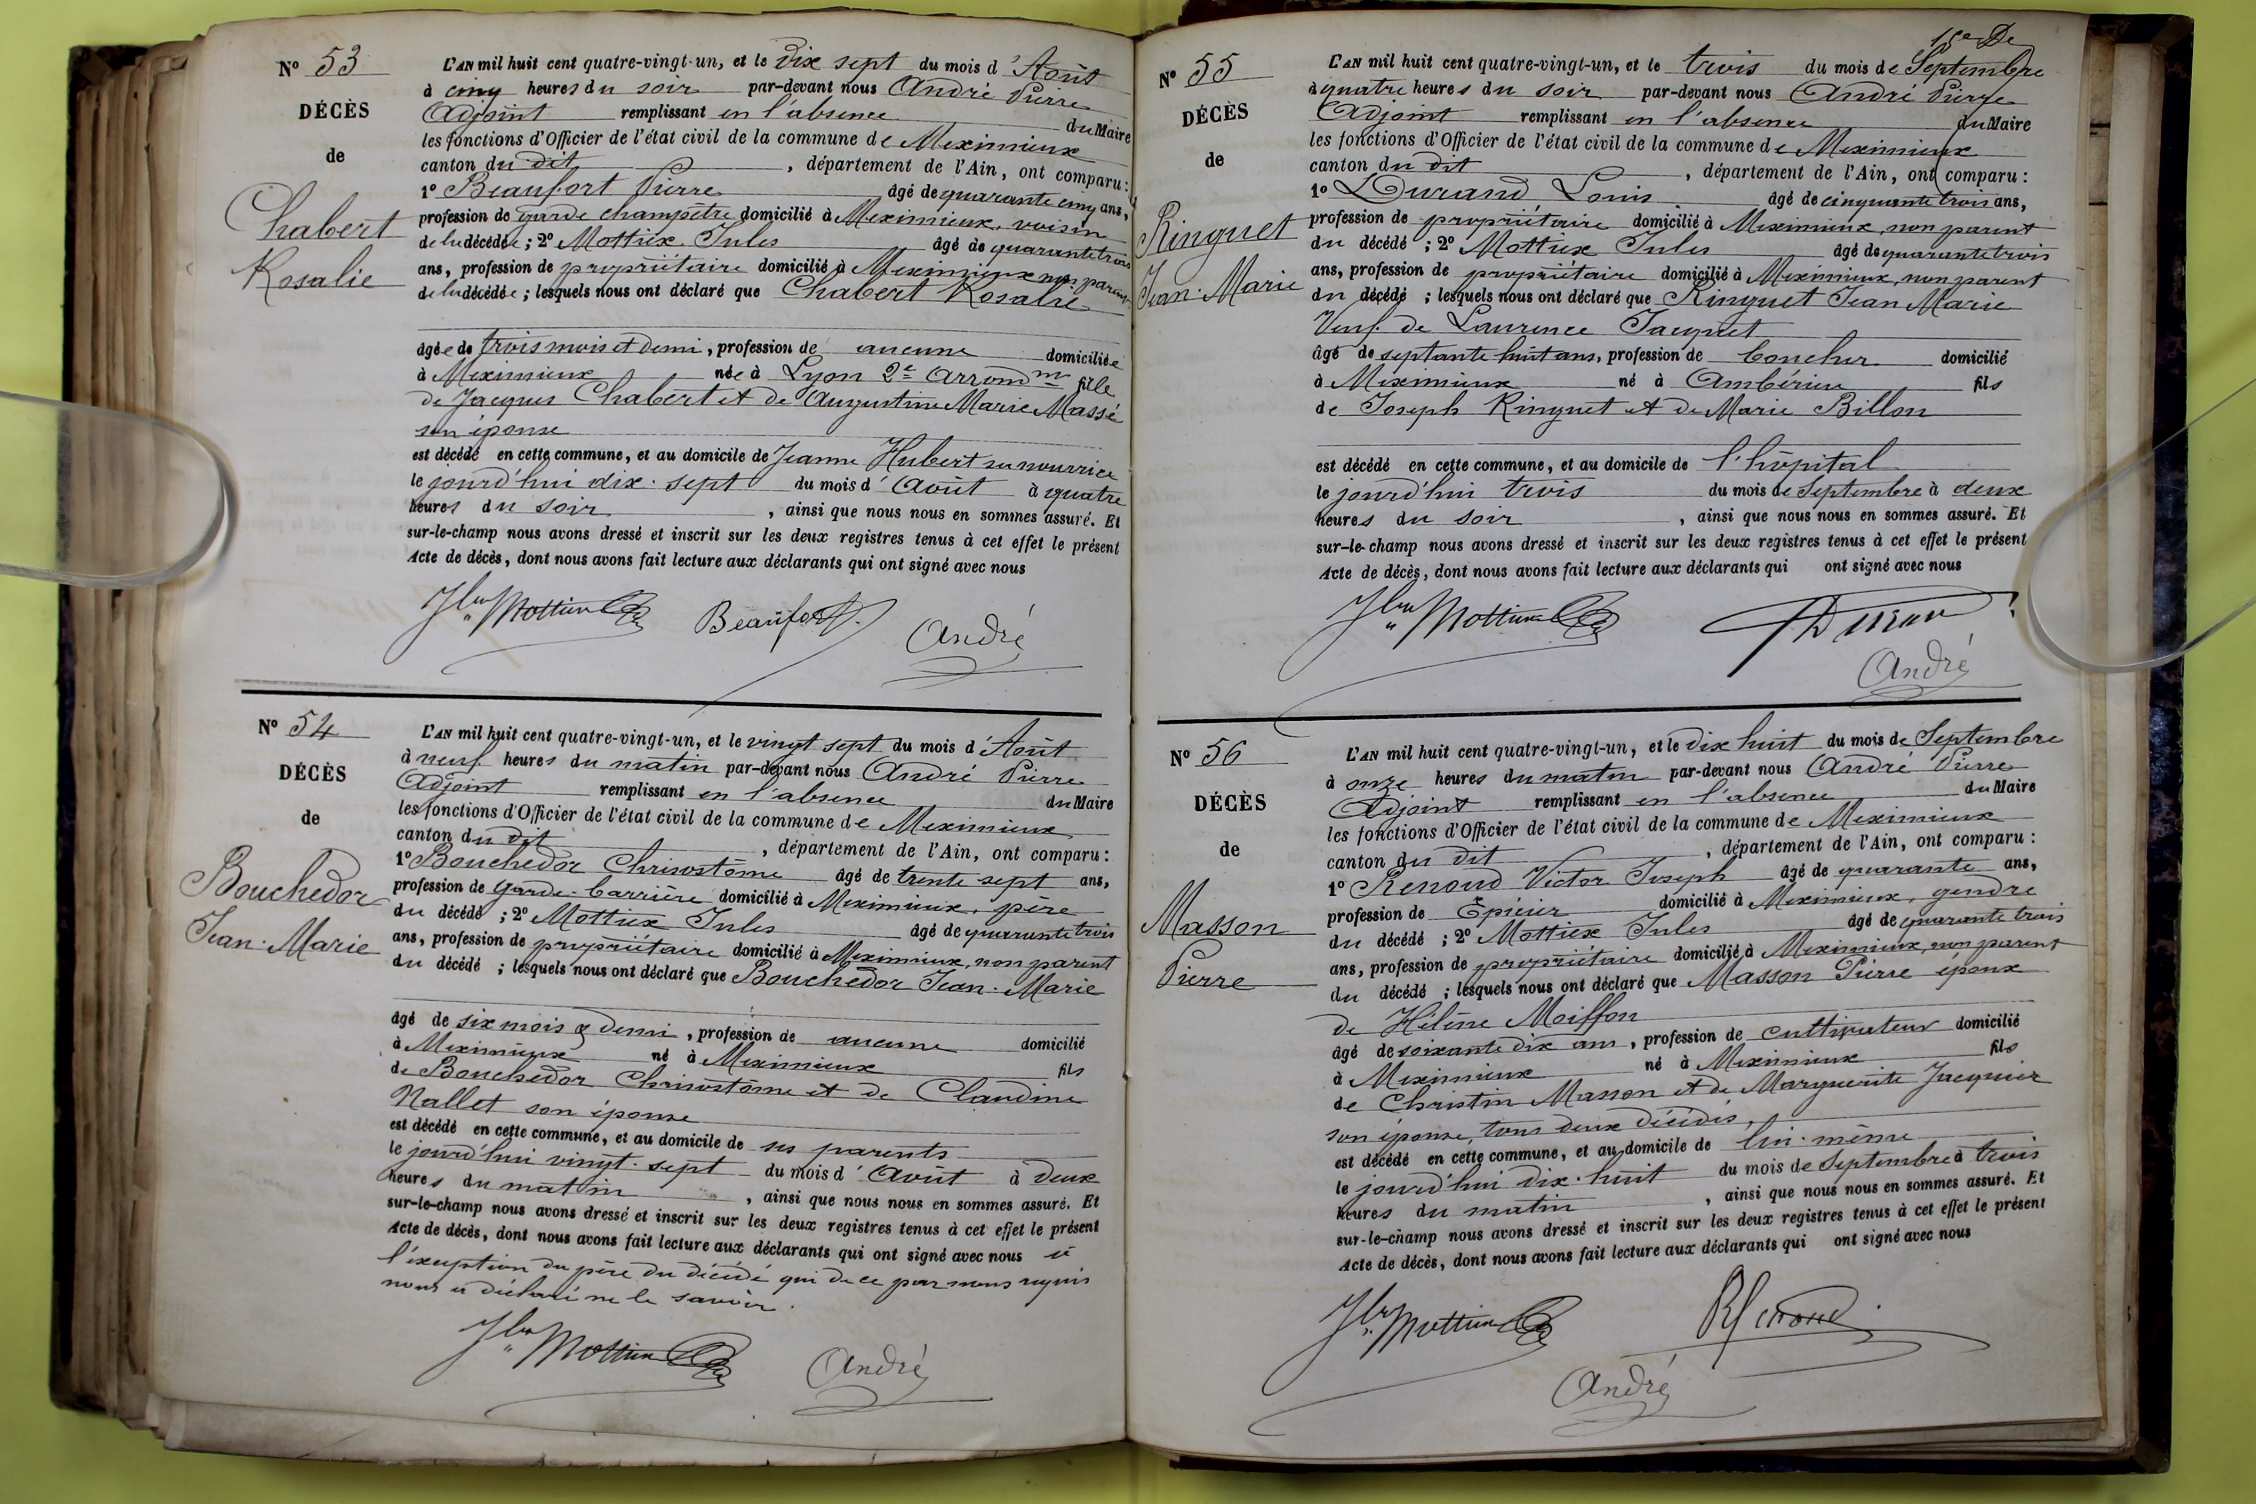 N° 53
DÉCÈS
de
Chabert
Rosalie
L'AN mil huit cent quatre-vingt-un, et le dix sept du mois d'Août
à cinq heures du soir par-devant nous André Pierre
Adjoint remplissant en l'absence du Maire
les fonctions d'Officier de l'état civil de la commune de Meximieux
canton du dit, département de l'Ain, ont comparu :
1° Beaufort Pierre âgé de quarante cinq ans,
profession de garde champêtre domicilié à Meximieux, voisin
de la décédée ; 2° Mottiex Jules âgé de quarante trois
ans, profession de propriétaire domicilié à Meximieux non parent
de la décédée ; lesquels nous ont déclaré que Chabert Rosalie
âgée de trois mois et demi, profession de aucune domiciliée
à Meximieux née à Lyon 2e arrondmt fille
de Jacques Chabert et de Augustine Marie Massé
son épouse
est décédé en cette commune, et au domicile de Jeanne Hubert sa nourrice
le jourd'hui dix-sept du mois d'Août à quatre
heures du soir, ainsi que nous nous en sommes assuré. Et
sur-le-champ nous avons dressé et inscrit sur les deux registres tenus à cet effet le présent
Acte de décès, dont nous avons fait lecture aux déclarants qui ont signé avec nous
Mottiex Beaufort André
N° 54
DÉCÈS
de
Bouchedor
Jean-Marie
L'AN mil huit cent quatre-vingt-un, et le vingt sept du mois d'Août
à neuf heures du matin par-devant nous André Pierre
Adjoint remplissant en l'absence du Maire
les fonctions d'Officier de l'état civil de la commune de Meximieux
canton du dit, département de l'Ain, ont comparu :
1° Bouchedor Chrisostôme âgé de trente sept ans,
profession de garde-barrière domicilié à Meximieux, père
du décédé ; 2° Mottiex Jules âgé de quarante trois
ans, profession de propriétaire domicilié à Meximieux, non parent
du décédé ; lesquels nous ont déclaré que Bouchedor Jean-Marie
âgé de six mois & demi, profession de aucune domicilié
à Meximieux né à Meximieux fils
de Bouchedor Chrisostôme et de Claudine
Nallet son épouse
est décédé en cette commune, et au domicile de ses parents
le jourd'hui vingt-sept du mois d'Août à deux
heures du matin, ainsi que nous nous en sommes assuré. Et
sur-le-champ nous avons dressé et inscrit sur les deux registres tenus à cet effet le présent
Acte de décès, dont nous avons fait lecture aux déclarants qui ont signé avec nous à
l'exception du père du décédé qui de ce par nous requis
nous a déclaré ne le savoir.
Mottiex André
N° 55
DÉCÈS
de
Ringuet
Jean-Marie
L'AN mil huit cent quatre-vingt-un, et le trois du mois de Septembre
à quatre heures du soir par-devant nous André Pierre
Adjoint remplissant en l'absence du Maire
les fonctions d'Officier de l'état civil de la commune de Meximieux
canton du dit, département de l'Ain, ont comparu :
1° Durand Louis âgé de cinquante trois ans,
profession de propriétaire domicilié à Meximieux, non parent
du décédé ; 2° Mottiex Jules âgé de quarante trois
ans, profession de propriétaire domicilié à Meximieux, non parent
du décédé ; lesquels nous ont déclaré que Ringuet Jean Marie
Veuf de Laurence Jacquet
âgé de septante huit ans, profession de boucher domicilié
à Meximieux né à Ambérieu fils
de Joseph Ringuet et de Marie Billon
est décédé en cette commune, et au domicile de l'hôpital
le jourd'hui trois du mois de Septembre à deux
heures du soir, ainsi que nous nous en sommes assuré. Et
sur-le-champ nous avons dressé et inscrit sur les deux registres tenus à cet effet le présent
Acte de décès, dont nous avons fait lecture aux déclarants qui ont signé avec nous
Mottiex Durand
André
N° 56
DÉCÈS
de
Masson
Pierre
L'AN mil huit cent quatre-vingt-un, et le dix huit du mois de Septembre
à onze heures du matin par-devant nous André Pierre
Adjoint remplissant en l'absence du Maire
les fonctions d'Officier de l'état civil de la commune de Meximieux
canton du dit, département de l'Ain, ont comparu :
1° Renoud Victor Joseph âgé de quarante ans,
profession de Épicier domicilié à Meximieux, gendre
du décédé ; 2° Mottiex Jules âgé de quarante trois
ans, profession de propriétaire domicilié à Meximieux, non parent
du décédé ; lesquels nous ont déclaré que Masson Pierre époux
de Hélène Moiffon
âgé de soixante dix ans, profession de cultivateur domicilié
à Meximieux né à Meximieux fils
de Christin Masson et de Marguerite Jacquier
son épouse, tous deux décédés,
est décédé en cette commune, et au domicile de lui-même
le jourd'hui dix-huit du mois de Septembre à trois
heures du matin, ainsi que nous nous en sommes assuré. Et
sur-le-champ nous avons dressé et inscrit sur les deux registres tenus à cet effet le présent
Acte de décès, dont nous avons fait lecture aux déclarants qui ont signé avec nous
Mottiex Renoud
André